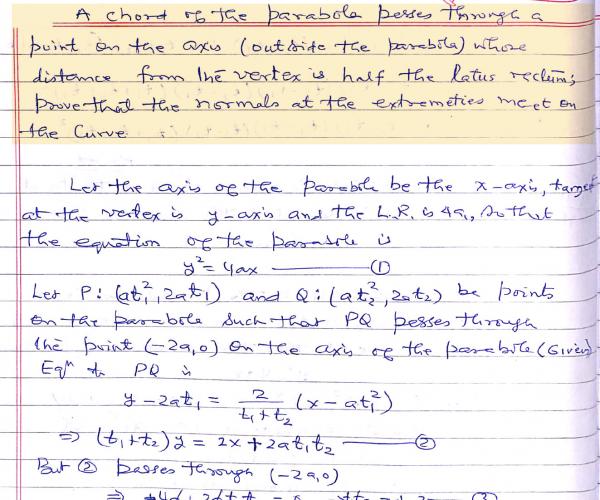 A chord of the parabola passes through a
point on the axis (outside the parabola) whose
distance from the vertex is half the latus rectum;
prove that the normals at the extremeties meet on
the curve
Let the axis of the parabola be the x-axis, tangent
at the vertex is y-axis and the L.R. is 4a, so that
the equation of the parabola is
y² = 4ax ——— ①
Let P: (at₁², 2at₁) and Q: (at₂², 2at₂) be points
on the parabola such that PQ passes through
the point (-2a, 0) on the axis of the parabola (Given)
Eqⁿ to PQ is
y - 2at₁ = 2/(t₁+t₂) (x - at₁²)
⇒ (t₁+t₂)y = 2x + 2at₁t₂ ——— ②
But ② passes through (-2a, 0)